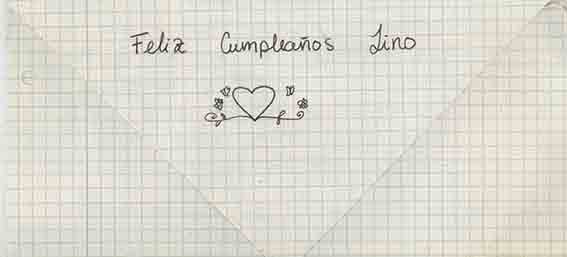 Feliz Cumpleaños Lino